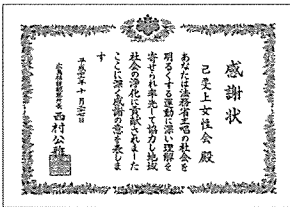 感謝状
己斐上女性会 殿
あなたは法務省主唱の社会を
明るくする運動に深い理解を
寄せられ率先して協力し地域
社会の浄化に貢献されました
ここに深く感謝の意を表しま
す
西村公雅